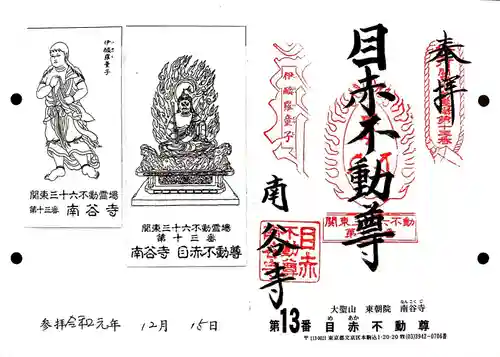 伊醯羅童子
關東三十六不動霊場
第十三番 南谷寺
關東三十六不動霊場
第十三番
南谷寺 目赤不動尊
参拝令和元年 12月 15日
奉拝
目赤不動尊
南谷寺
伊醯羅童子
關東三十六不動
目赤不動尊
大聖山 東朝院 南谷寺
なんこくじ
第13番 目赤不動尊
め あか
〒113-0021 東京都文京区本駒込1-20-20 ☎(03)3942-0706